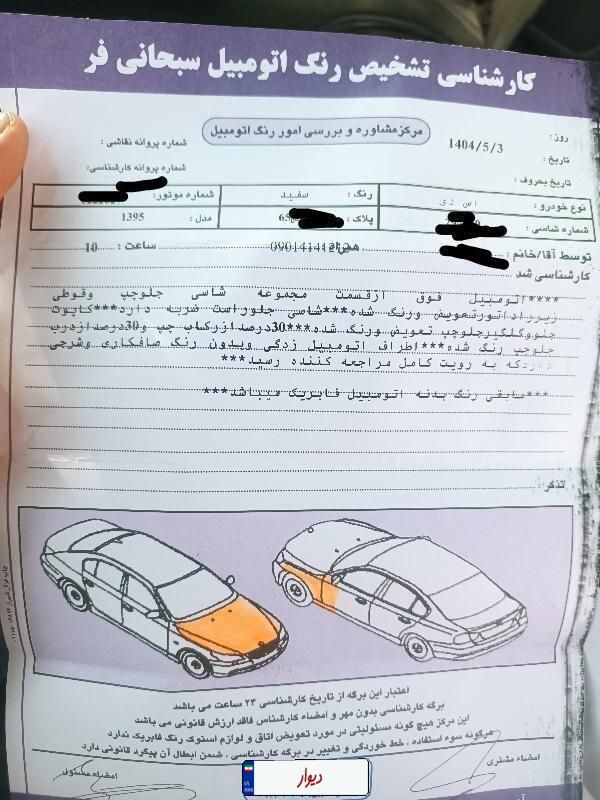 کارشناسی تشخیص رنگ اتومبیل سبحانی فر
روز :
مرکز مشاوره و بررسی امور رنگ اتومبیل
شماره پروانه نقاشی :
تاریخ : 1404/5/3
شماره پروانه کارشناسی:
تاریخ بحروف :
نوع خودرو : اس دی
رنگ : سفید
شماره موتور:
شماره شاسی :
پلاک :
مدل : 1395
توسط آقا/خانم :
همراه:
ساعت : 10
کارشناسی شد
****اتومبیل فوق ازقسمت مجموعه شاسی جلوچپ وقوطی
زیررادیاتورتعویض ورنگ شده***شاسی جلوراست ضربه دارد***کاپوت
جلووگلگیرجلوچپ تعویض ورنگ شده***30درصدازرکاب چپ و30درصدازدرب
جلوچپ رنگ شده***اطراف اتومبیل زدگی وبدون رنگ صافکاری وشرجی
داردکه به رویت کامل مراجعه کننده رسید***
***مابقی رنگ بدنه اتومبیل فابریک میباشد***
تذکر:
اعتبار این برگه از تاریخ کارشناسی ۲۴ ساعت می باشد
برگه کارشناسی بدون مهر و امضاء کارشناس فاقد ارزش قانونی می باشد
این مرکز هیچ گونه مسئولیتی در مورد تعویض اتاق و لوازم استوک رنگ فابریک ندارد
هرگونه سوء استفاده ، خط خوردگی و تغییر در برگه کارشناسی ، ضمن ابطال آن پیگرد قانونی دارد
امضاء مشتری
امضاء مسئول
دیوار